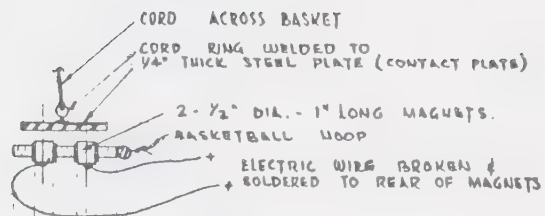 CORD ACROSS BASKET
CORD RING WELDED TO
1/4" THICK STEEL PLATE (CONTACT PLATE)
2 - 1/2" DIA. - 1" LONG MAGNETS.
BASKETBALL HOOP
+ ELECTRIC WIRE BROKEN &
+ SOLDERED TO REAR OF MAGNETS